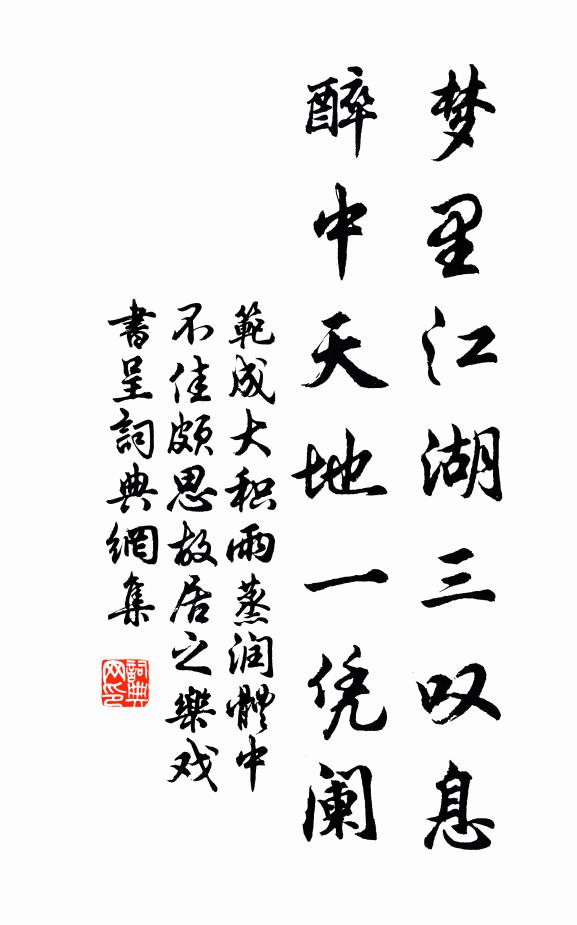 梦里江湖三叹息
醉中天地一凭阑
範成大积雨蒸润體中
不佳颇思故居之樂戏
書呈詞典網集
詞典网印